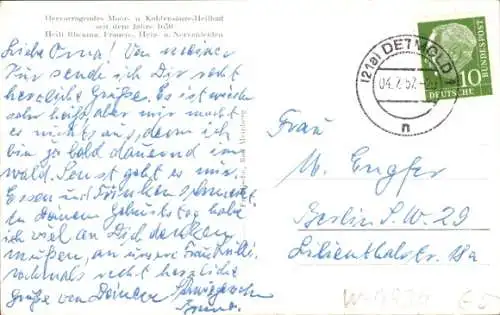 Hervorragendes Moor- u. Kohlensäure-Heilbad
seit dem Jahre 1676
Heilt Rheuma, Frauen-, Herz- u. Nervenleiden
Liebe Oma! Von meiner
Kur sende ich Dir recht
herzliche Grüße. Es ist wieder
sehr heiß aber mir macht
es nichts aus, denn ich
bin ja bald dauernd im
Wald. Sonst geht es mir.
Essen und Trinken schmeckt
In Deinem Geburtstag habe
ich viel an Dich denken
müßen, an unsere
nochmals recht herzliche
Grüße von Deiner Schwiegertochter
(21a) DETMOLD 1
04.7.57
n
DEUTSCHE BUNDESPOST
10
Frau
M. Engfer
Berlin S.W. 29
Lilienthalstr. 18a